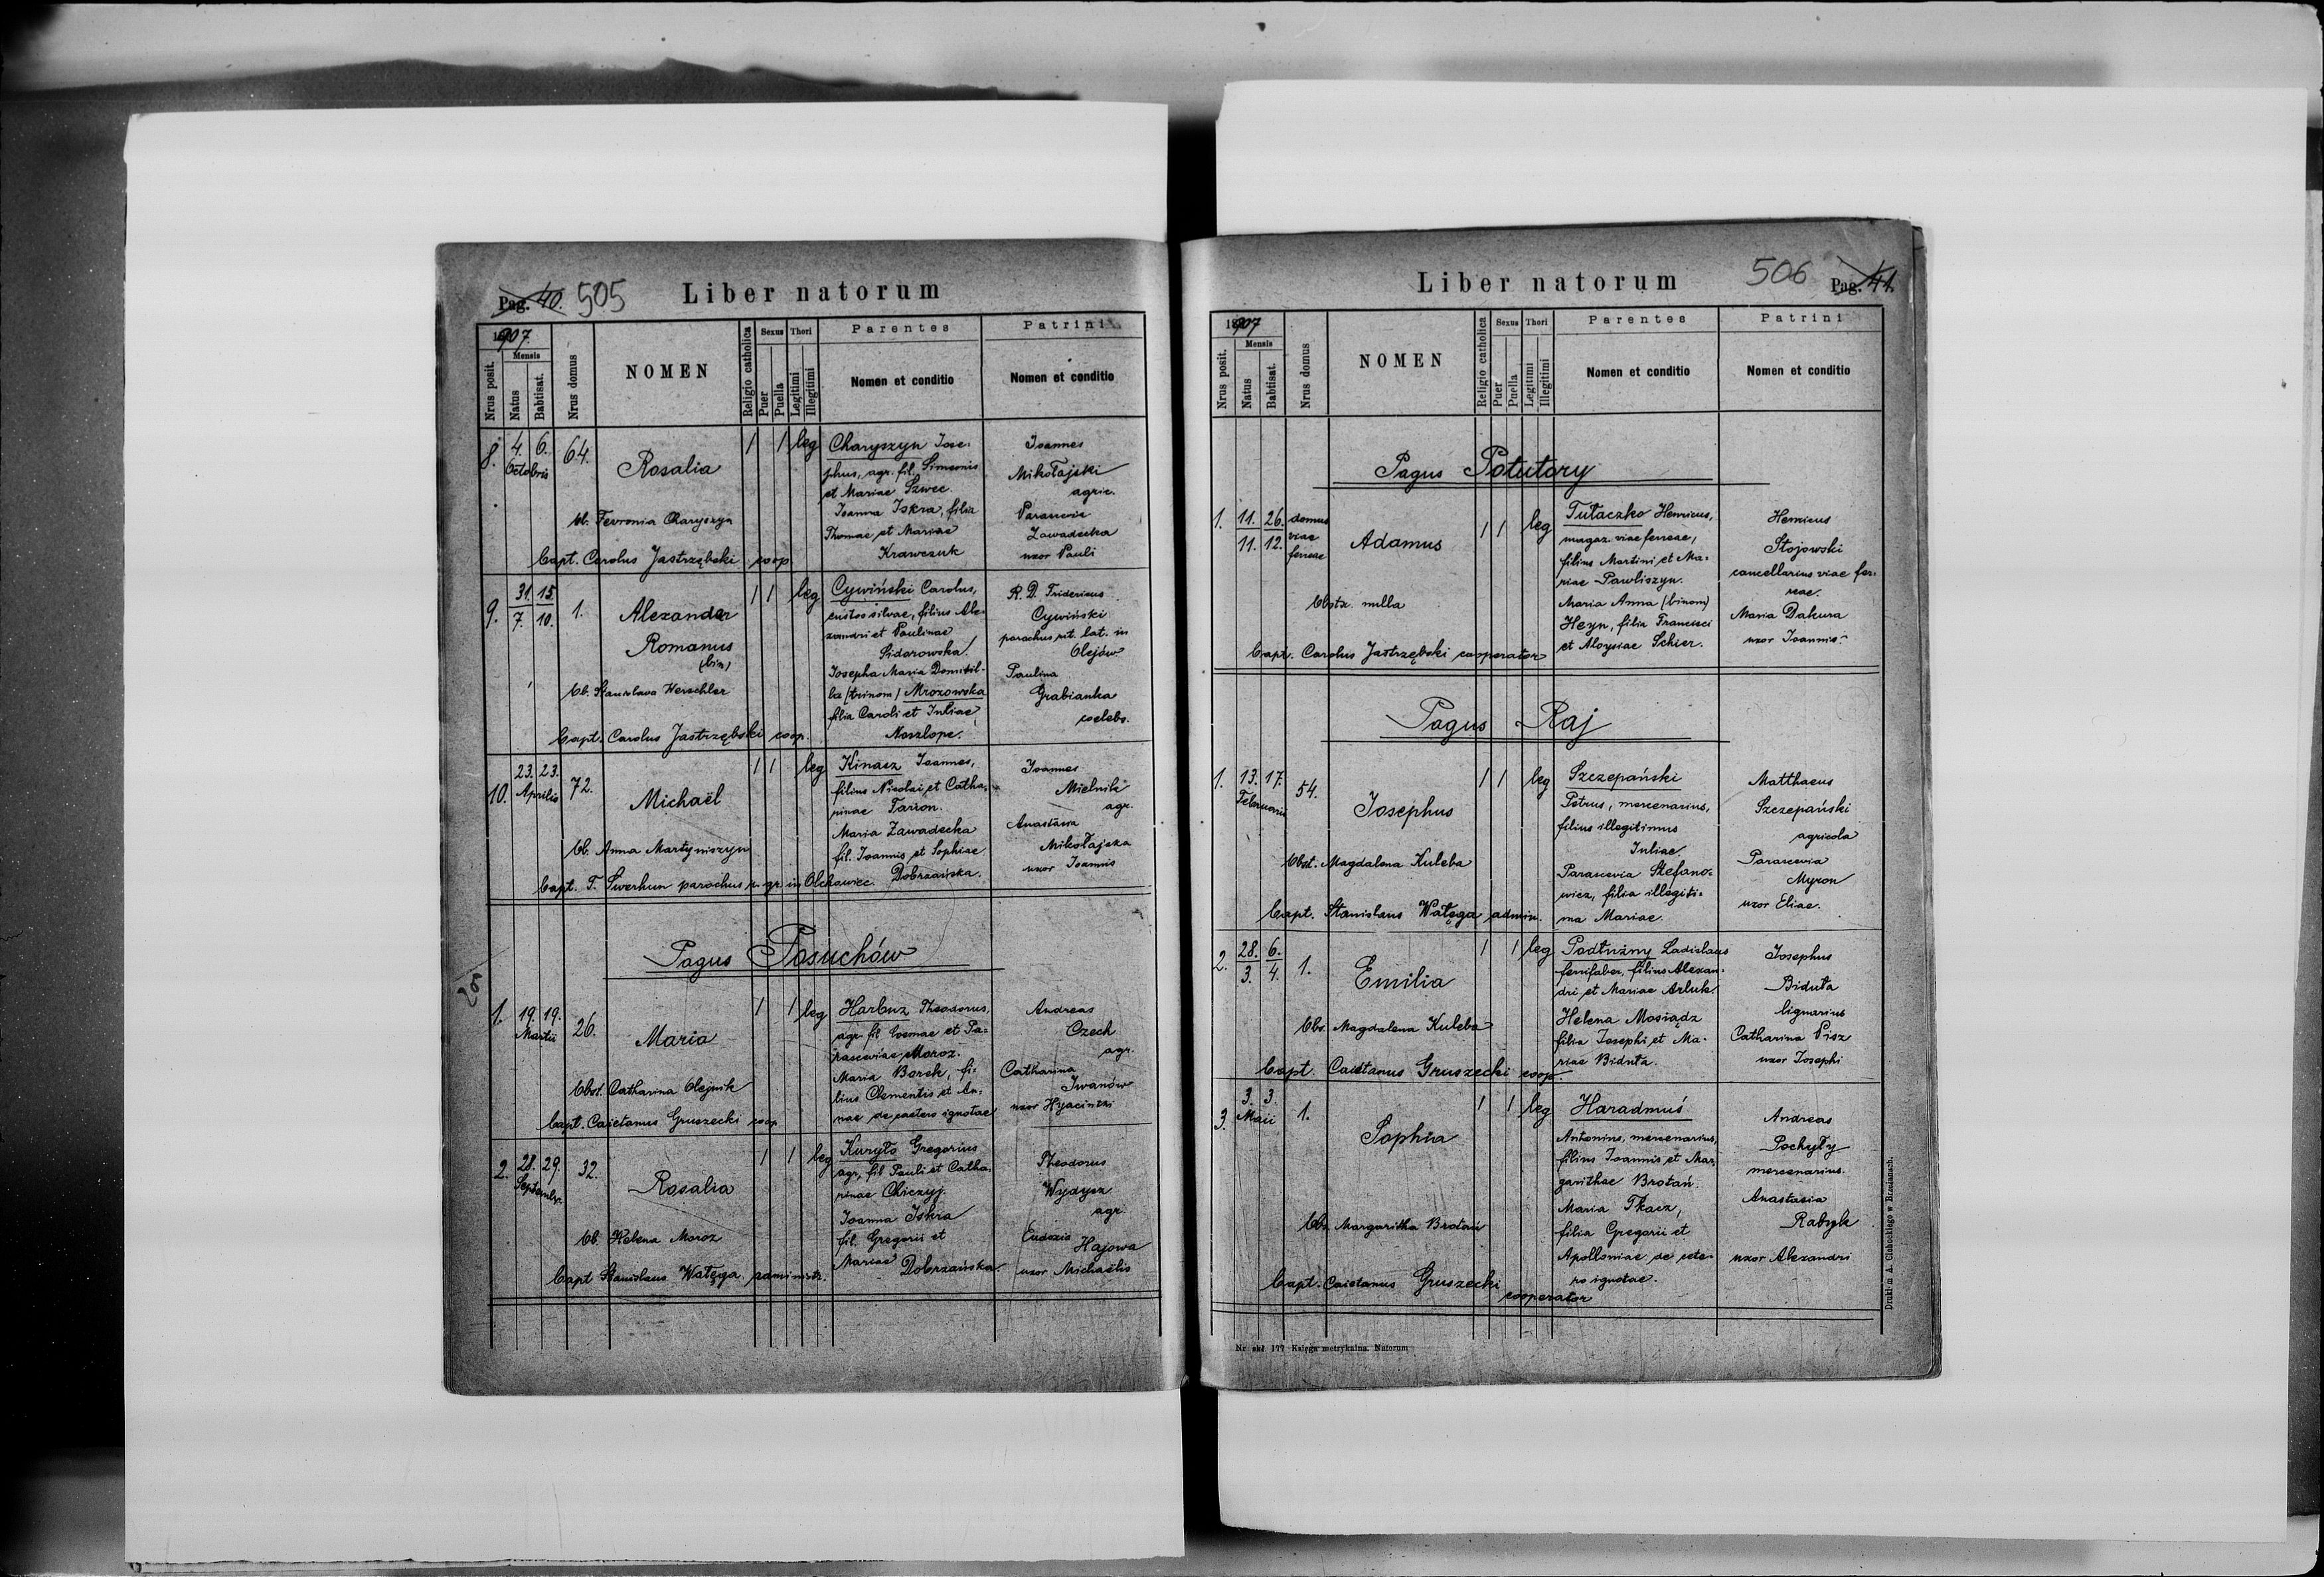 Pag. 40. 505
Liber natorum
1907.
Nrus posit.
Mensis
Natus
Babtisat.
Nrus domus
NOMEN
Religio catholica
Sexus
Puer
Puella
Thori
Legitimi
Illegitimi
Parentes
Nomen et conditio
Patrini
Nomen et conditio
8.
4. 6.
Octobris
64.
Rosalia
1 1 leg
Charyszyn Jose-
phus, agr. fil. Simeonis
et Mariae Szwec.
Joanna Iskra, filia
Thomae et Mariae
Krawczuk
Joannes
Mikołajski
agric.
Parascevia
Zawadecka
uxor Pauli
Ob. Fevronia Charyszyn
Bapt. Carolus Jastrzębski coop
9.
31. 15.
7. 10.
1.
Alexander
Romanus
(bin)
1 1 leg
Cywiński Carolus,
custos silvae, filius Ale-
xandri et Paulinae
Sidorowska.
Josepha Maria Domitil-
la (trinom) Mrozowska
filia Caroli et Juliae
Noszlope.
R. D. Fridericus
Cywiński
parochus rit. lat. in
Olejów
Paulina
Grabianka
coelebs.
Ob. Stanislava Herschler
Bapt. Carolus Jastrzębski coop.
10.
23. 23.
Aprilis
72.
Michaël
1 1 leg
Kinasz Joannes,
filius Nicolai et Catha-
rinae Farion.
Maria Zawadecka
fil. Joannis et Sophiae
Dobrzańska.
Joannes
Mielnik
agr.
Anastasia
Mikołajska
uxor Joannis
Ob. Anna Martyniszyn
Bapt. T. Swerhun parochus r. gr. in Olchowiec.
Pagus Posuchów
1.
19. 19.
Martii
26.
Maria
1 1 leg
Harbuz Theodorus,
agr. fil Cosmae et Pa-
rasceviae Moroz.
Maria Borek, fi-
lius Clementis et An-
nae de caetero ignotae
Andreas
Czech
agr.
Catharina
Iwanów
uxor Hyacinthi
Obst. Catharina Olejnik
Bapt. Caietanus Gruszecki coop
2.
28. 29.
Septembr.
32.
Rosalia
1 1 leg
Kuryło Gregorius
agr, fil Pauli et Catha-
rinae Chiczyj.
Joanna Iskra
fil. Gregorii et
Mariae Dobrzańska.
Theodorus
Wydysz
agr.
Eudoxia
Hajowa
uxor Michaëlis
Ob. Helena Moroz
Bapt Stanislaus Wałęga administr.
Liber natorum
506 Pag. 41.
1907
Nrus posit.
Mensis
Natus
Babtisat.
Nrus domus
NOMEN
Religio catholica
Sexus
Puer
Puella
Thori
Legitimi
Illegitimi
Parentes
Nomen et conditio
Patrini
Nomen et conditio
Pagus Potutory
1.
11. 26.
11. 12.
domus
viae
ferreae
Adamus
1 1 leg
Tutaczko Henricus,
magaz. viae ferreae,
filius Martini et Ma-
riae Pawliszyn.
Maria Anna (binom)
Heyn, filia Francisci
et Aloysiae Schier.
Henricus
Stojowski
cancellarius viae fer-
reae.
Maria Dakura
uxor Joannis
Obstx. nulla
Bapt. Carolus Jastrzębski cooperator
Pagus Raj
1.
13. 17.
Februarii
54.
Josephus
1 1 leg
Szczepański
Petrus, mercenarius,
filius illegitimus
Juliae.
Parascevia Stefano-
wicz, filia illegiti-
ma Mariae.
Matthaeus
Szczepański
agricola
Parascevia
Myron
uxor Eliae.
Obst. Magdalena Kuleba
Bapt. Stanislaus Wałęga admin.
2.
28. 6.
3. 4.
1.
Emilia
1 1 leg
Podłużny Ladislaus
ferrifaber, filius Alexan-
dri et Mariae Arluk.
Helena Mosiądz
filia Josephi et Ma-
riae Biduła.
Josephus
Biduła
lignarius
Catharina Pisz
uxor Josephi
Obs. Magdalena Kuleba
Bapt. Caietanus Gruszecki coop.
3.
3. 3.
Maii
1.
Sophia
1 1 leg
Haradmuś
Antonius, mercenarius,
filius Joannis et Mar-
garithae Brotań.
Maria Tkacz,
filia Gregorii et
Apolloniae de cete-
ro ignotae.
Andreas
Pochyły
mercenarius.
Anastasia
Rabyk
uxor Alexandri
Obs. Margaritha Brotań
Bapt. Caietanus Gruszecki
cooperator
Drukiem A. Cichockiego w Brzeżanach.
Nr. skł. 177 Księga metrykalna. Natorum